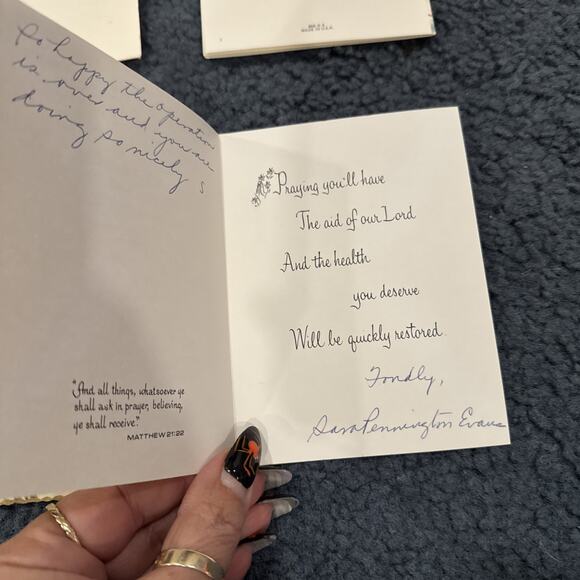 So happy the operation
is over and you are
doing so nicely
S
"And all things, whatsoever ye
shall ask in prayer, believing,
ye shall receive."
MATTHEW 21:22
Praying you'll have
The aid of our Lord
And the health
you deserve
Will be quickly restored.
Fondly,
Sara Pennington Evans
MADE IN U.S.A.